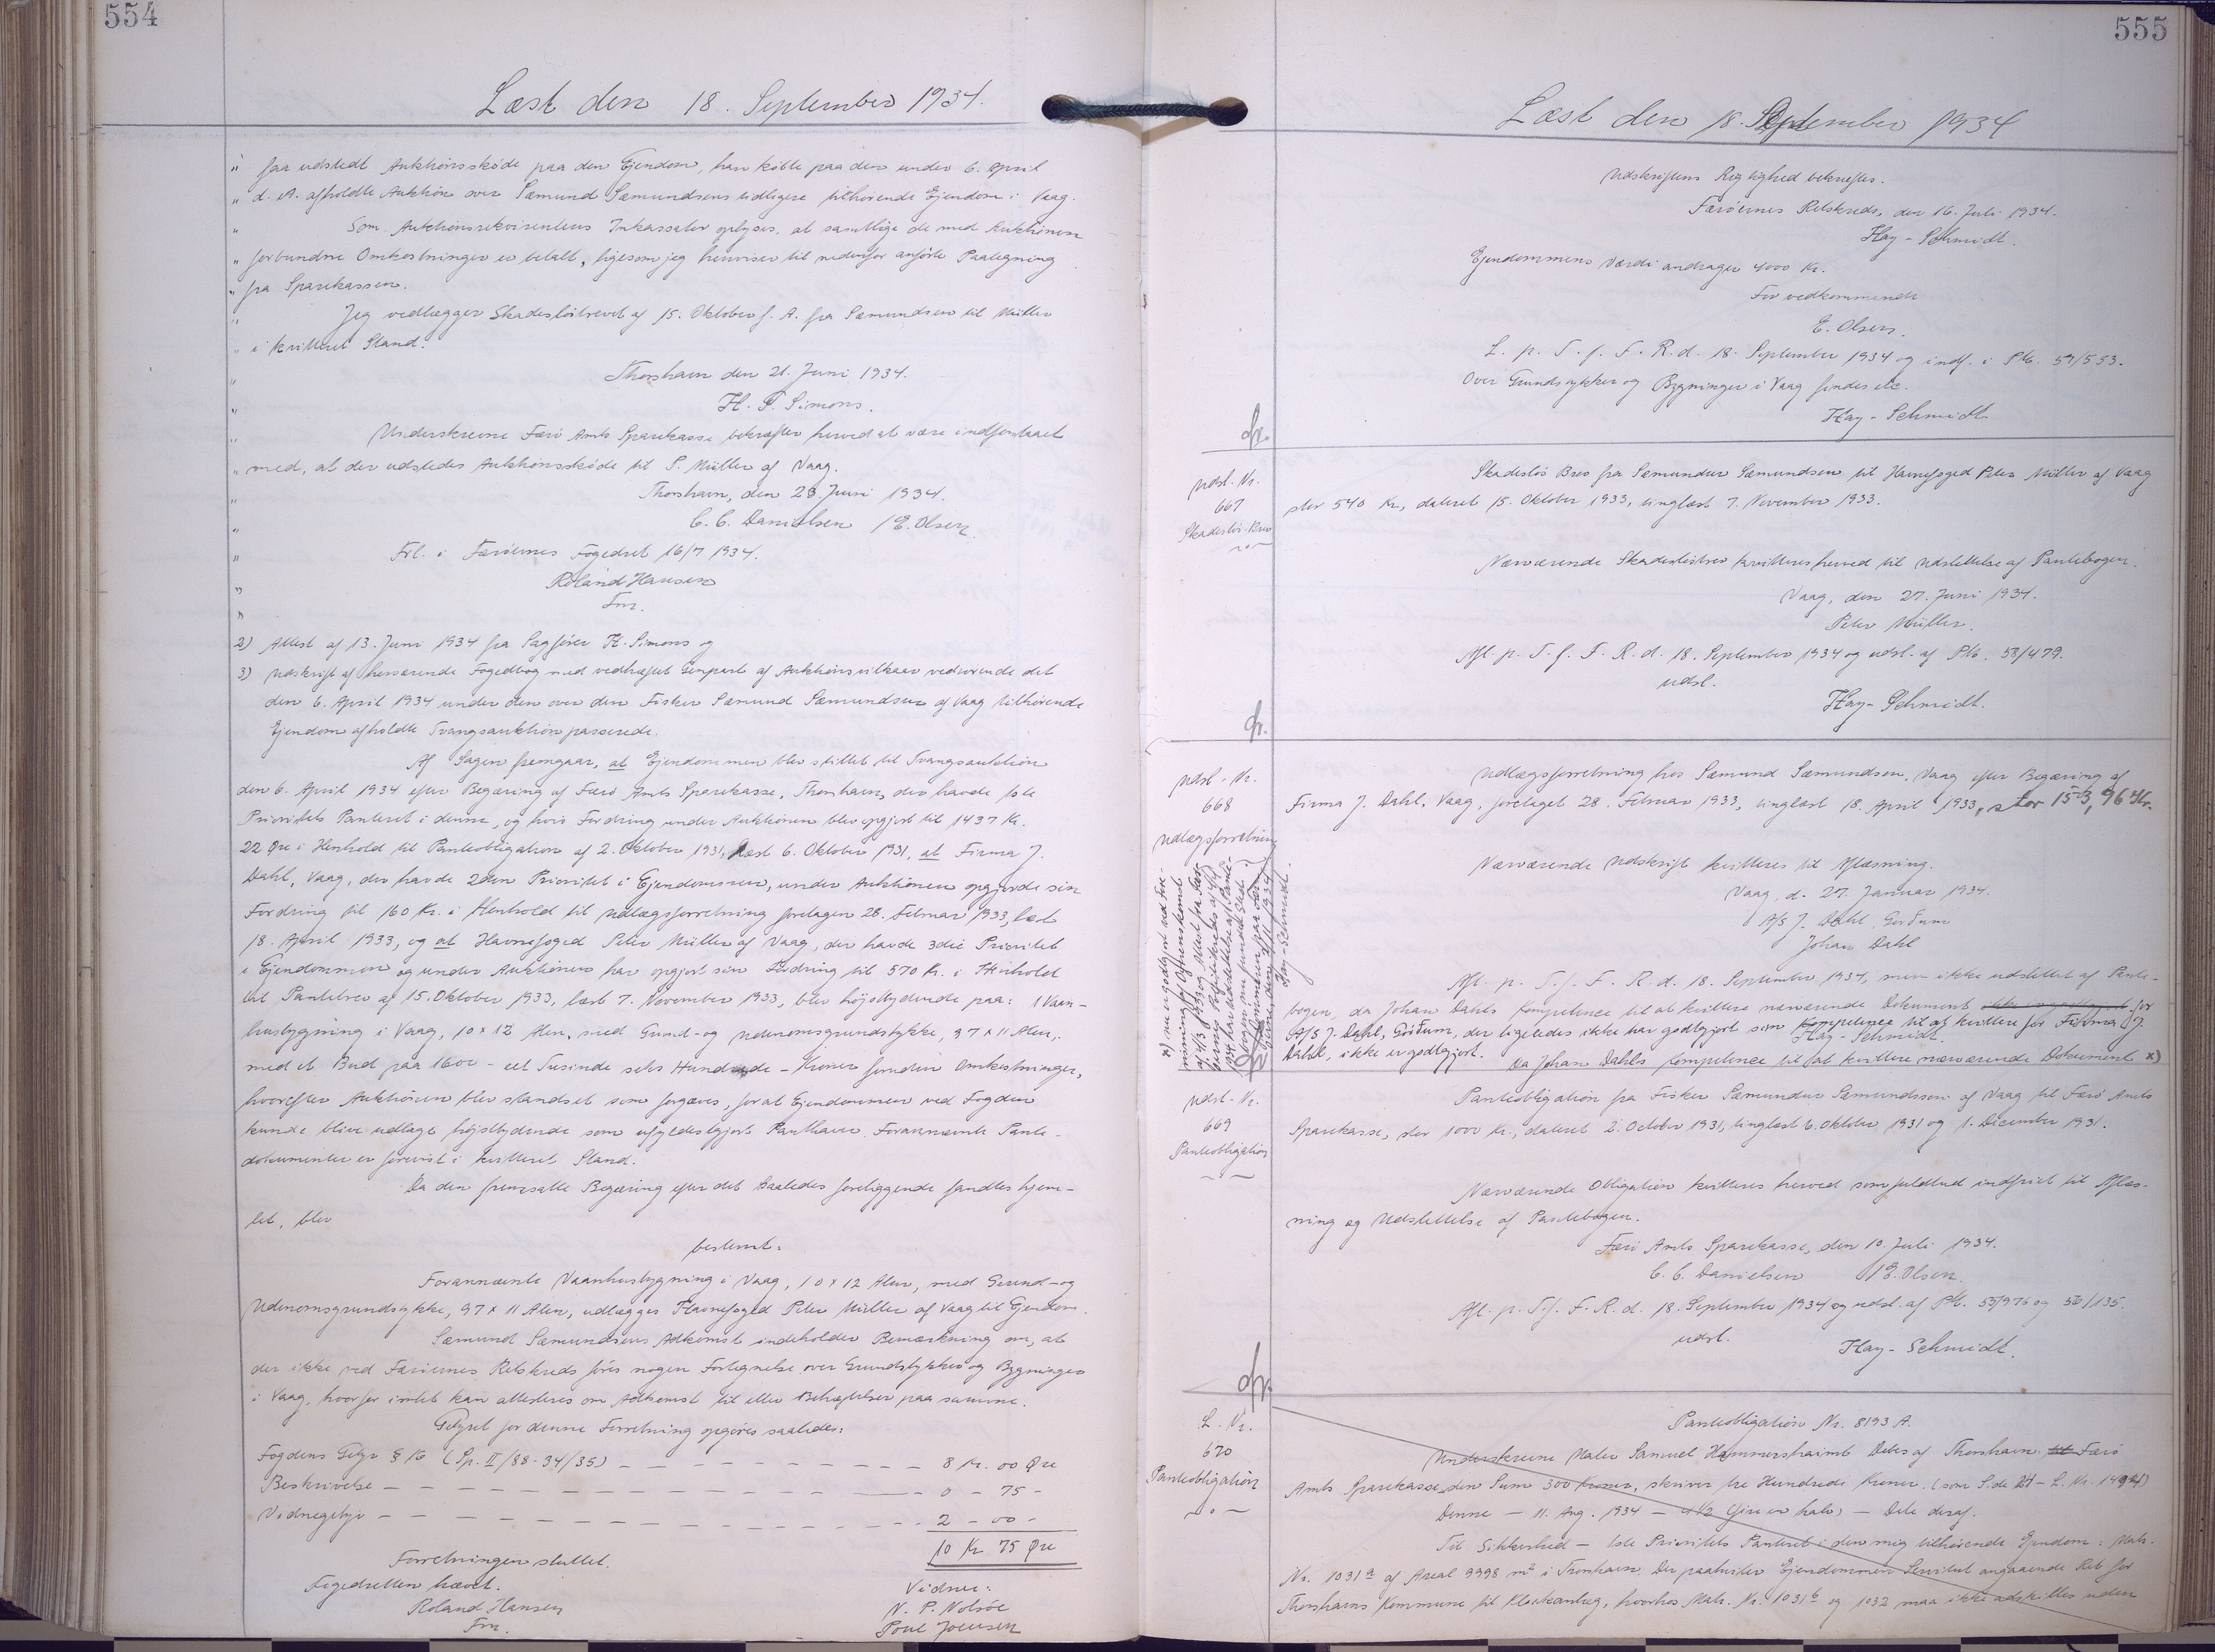 554
Læst den 18. September 1934.
" faa udstedt Auktionsskøde paa den Ejendom, han købte paa den under 6. April
" d. A. afholdte Auktion over Sæmund Sæmundsens tidligere tilhørende Ejendom i Vaag.
" Som Auktionsrekvirentens Inkassator oplyses, at samtlige de med Auktionen
" forbundne Omkostninger er betalt, ligesom jeg henviser til nedenfor anførte Paategning
" fra Sparekassen.
" Jeg vedlægger Skadesløsbrevet af 15. Oktober f. A. fra Sæmundsen til Müller
" i kvitteret Stand.
" Thorshavn den 21. Juni 1934.
" H. P. Simons.
" Underskrevne Færø Amts Sparekasse bekræfter herved at være indforstaaet
" med, at der udstedes Auktionsskøde til P. Müller af Vaag.
" Thorshavn, den 23. Juni 1934.
" C. C. Danielsen / E. Olsen
" Frl. i Færøernes Fogedret 16/7 1934.
" Roland Hansen
" Fm.
2) Attest af 13. Juni 1934 fra Sagfører H. Simons og
3) Udskrift af herværende Fogedbog med vedhæftet Genpart af Auktionsvilkaar vedrørende det
den 6. April 1934 under den over den Fisker Sæmund Sæmundsen af Vaag tilhørende
Ejendom afholdte Tvangsauktion passerede.
Af Sagen fremgaar, at Ejendommen blev stillet til Tvangsauktion
den 6. April 1934 efter Begæring af Færø Amts Sparekasse, Thorshavn, der havde 1ste
Prioritets Panteret i denne, og hvis Fordring under Auktionen blev opgjort til 1437 Kr.
22 Øre i Henhold til Panteobligation af 2. Oktober 1931, læst 6. Oktober 1931, at Firma J.
Dahl, Vaag, der havde 2den Prioritet i Ejendommen, under Auktionen opgjorde sin
Fordring til 160 Kr. i Henhold til Udlægsforretning foretagen 28. Februar 1933, læst
18. April 1933, og at Havnefoged Peter Müller af Vaag, der havde 3die Prioritet
i Ejendommen og under Auktionen har opgjort sin Fordring til 570 Kr. i Henhold
til Pantebrev af 15. Oktober 1933, læst 7. November 1933, blev højstbydende paa: 1 Vaan-
husbygning i Vaag, 10 x 12 Alen, med Grund- og Udenomsgrundstykke, 97 x 11 Alen,
med et Bud paa 1600 - eet Tusinde seks Hundrede - Kroner foruden Omkostninger,
hvorefter Auktionen blev standset som forgæves, for at Ejendommen ved Fogden
kunde blive udlagt højstbydende som ufyldestgjort Panthaver. Forannævnte Pante-
dokumenter er forevist i kvitteret Stand.
Da den fremsatte Begæring efter det saaledes foreliggende fandtes hjem-
let, blev
bestemt:
Forannævnte Vaanhusbygning i Vaag, 10 x 12 Alen, med Grund- og
Udenomsgrundstykke, 97 x 11 Alen, udlægges Havnefoged Peter Müller af Vaag til Ejendom.
Sæmund Sæmundsens Adkomst indeholder Bemærkning om, at
der ikke ved Færøernes Retskreds føres nogen Fortegnelse over Grundstykker og Bygninger
i Vaag, hvorfor intet kan attesteres om Adkomst til eller Behæftelser paa samme.
Gebyret for denne Forretning opgøres saaledes:
Fogdens Gebyr § 16 (Sp. II/88-34/35) - - - - - - - - 8 Kr. 00 Øre
Beskrivelse - - - - - - - - - - 0 - 75 -
Vidnegebyr - - - - - - - - - - 2 - 00 -
10 Kr 75 Øre
Forretningen sluttet.
Fogedretten hævet.
Roland Hansen
Fm.
Vidner:
N. P. Nolsøe
Poul Joensen
555
Læst den 18. September 1934
Udskriftens Rigtighed bekræftes.
Færøernes Retskreds, den 16. Juli 1934.
Hay-Schmidt.
Ejendommens Værdi andrager 4000 Kr.
For vedkommende
E. Olsen.
L. p. T. f. F. R. d. 18. September 1934 og indf. i Ptb. 59/553.
Over Grundstykker og Bygninger i Vaag findes etc.
Hay-Schmidt
Udsl. Nr.
667
Skadesløs-Brev
Skadesløs Brev fra Sæmundur Sæmundsen til Havnefoged Peter Müller af Vaag
stor 540 Kr., dateret 15. Oktober 1933, tinglæst 7. November 1933.
Nærværende Skadesløsbrev kvitteres herved til Udslettelse af Pantebogen.
Vaag, den 27. Juni 1934.
Peter Müller.
Afl. p. T. f. F. R. d. 18. September 1934 og udsl. af Ptb. 58/479.
udsl.
Hay-Schmidt.
Udsl. Nr.
668
Udlægsforretning
Udlægsforretning hos Sæmund Sæmundsen, Vaag efter Begæring af
Firma J. Dahl, Vaag, foretaget 28. Februar 1933, tinglæst 18. April 1933, stor 153,96 Kr.
Nærværende Udskrift kvitteres til Aflæsning.
Vaag, d. 27. Januar 1934.
A/S J. Dahl, Gørðum
Johan Dahl
Afl. p. T. f. F. R. d. 18. September 1934, men ikke udslettet af Pante-
bogen, da Johan Dahls Kompetence til at kvittere nærværende Dokument ikke er godtgjort for
A/S J. Dahl, Gørðum, der ligeledes ikke har godtgjort som Kompetence til at kvittere for Firma J.
Dahl, ikke er godtgjort.
Hay-Schmidt.
Da Johan Dahls Kompetence til at kvittere nærværende Dokument x)
x) nu er godtgjort ved Fore-
visning af
Hay-Schmidt.
Udsl. Nr.
669
Panteobligation
Panteobligation fra Fisker Sæmundur Sæmundsson af Vaag til Færø Amts
Sparekasse, stor 1000 Kr., dateret 2. October 1931, tinglæst 6. Oktober 1931 og 1. December 1931.
Nærværende Obligation kvitteres herved som fuldtud indfriet til Aflæs-
ning og Udslettelse af Pantebogen.
Færø Amts Sparekasse, den 10. Juli 1934.
C. C. Danielsen / E. Olsen.
Afl. p. T. f. F. R. d. 18. September 1934 og udsl. af Ptb. 55/976 og 56/135.
udsl.
Hay-Schmidt.
L. Nr.
670
Panteobligation
Panteobligation Nr. 8193 A.
Underskrevne Maler Samuel Hammershaimb Debes af Thorshavn til Færø
Amts Sparekasse den Sum 300 Kroner, skriver tre Hundrede Kroner. (som S.de L. Nr. 1494)
Denne - 11. Aug. 1934 - 4 1/2 (fire en halv) - Dele deraf.
Til Sikkerhed - 1ste Prioritets Panteret i den mig tilhørende Ejendom: Matr.
Nr. 1031a af Areal 9998 m² i Thorshavn. Der paahviler Ejendommen Servitut angaaende Ret for
Thorshavns Kommune til Kloakanlæg, hvorhos Matr. Nr. 1031b og 1032 maa ikke adskilles uden